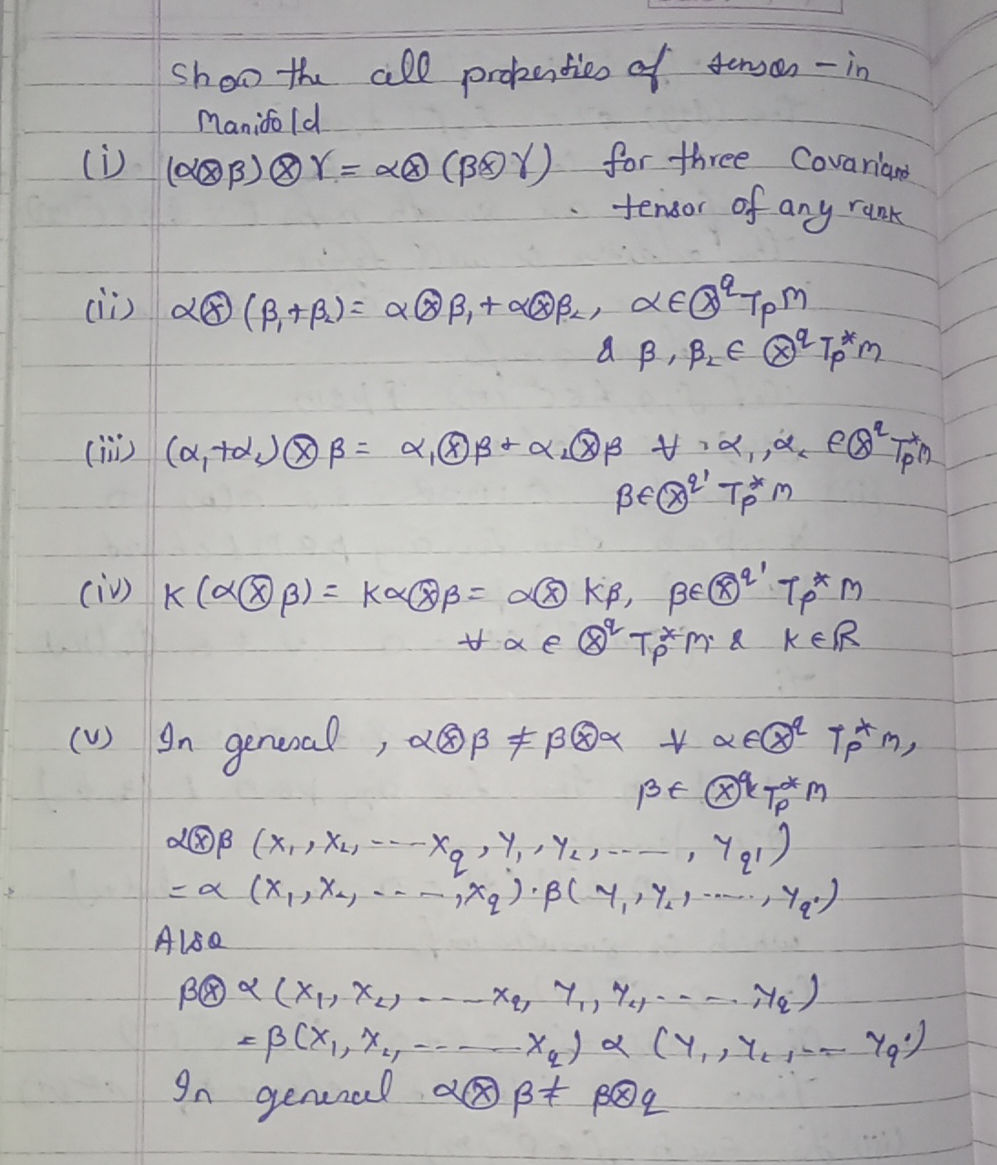 Show the all properties of tensor - in
Manifold
(i) (α⊗β)⊗γ = α⊗(β⊗γ) for three Covariant
tensor of any rank
(ii) α⊗(β₁+β₂) = α⊗β₁ + α⊗β₂, α∈⊗^q TpM
& β₁, β₂ ∈ ⊗^q Tp*M
(iii) (α₁+α₂)⊗β = α₁⊗β + α₂⊗β ∀ α₁, α₂ ∈⊗^q Tp*M
β∈⊗^q' Tp*M
(iv) K(α⊗β) = Kα⊗β = α⊗Kβ, β∈⊗^q' Tp*M
∀ α ∈ ⊗^q Tp*M & K∈R
(v) In general, α⊗β ≠ β⊗α ∀ α∈⊗^q Tp*M,
β∈ ⊗^q Tp*M
α⊗β (X₁, X₂, ---- Xq, Y₁, Y₂, ----, Yq')
= α (X₁, X₂, ----, Xq)·β(Y₁, Y₂, ----, Yq')
Also
β⊗α (X₁, X₂, ---- Xq, Y₁, Y₂, ---- Yq')
= β(X₁, X₂, ---- Xq) α (Y₁, Y₂, --- Yq')
In general α⊗β ≠ β⊗α